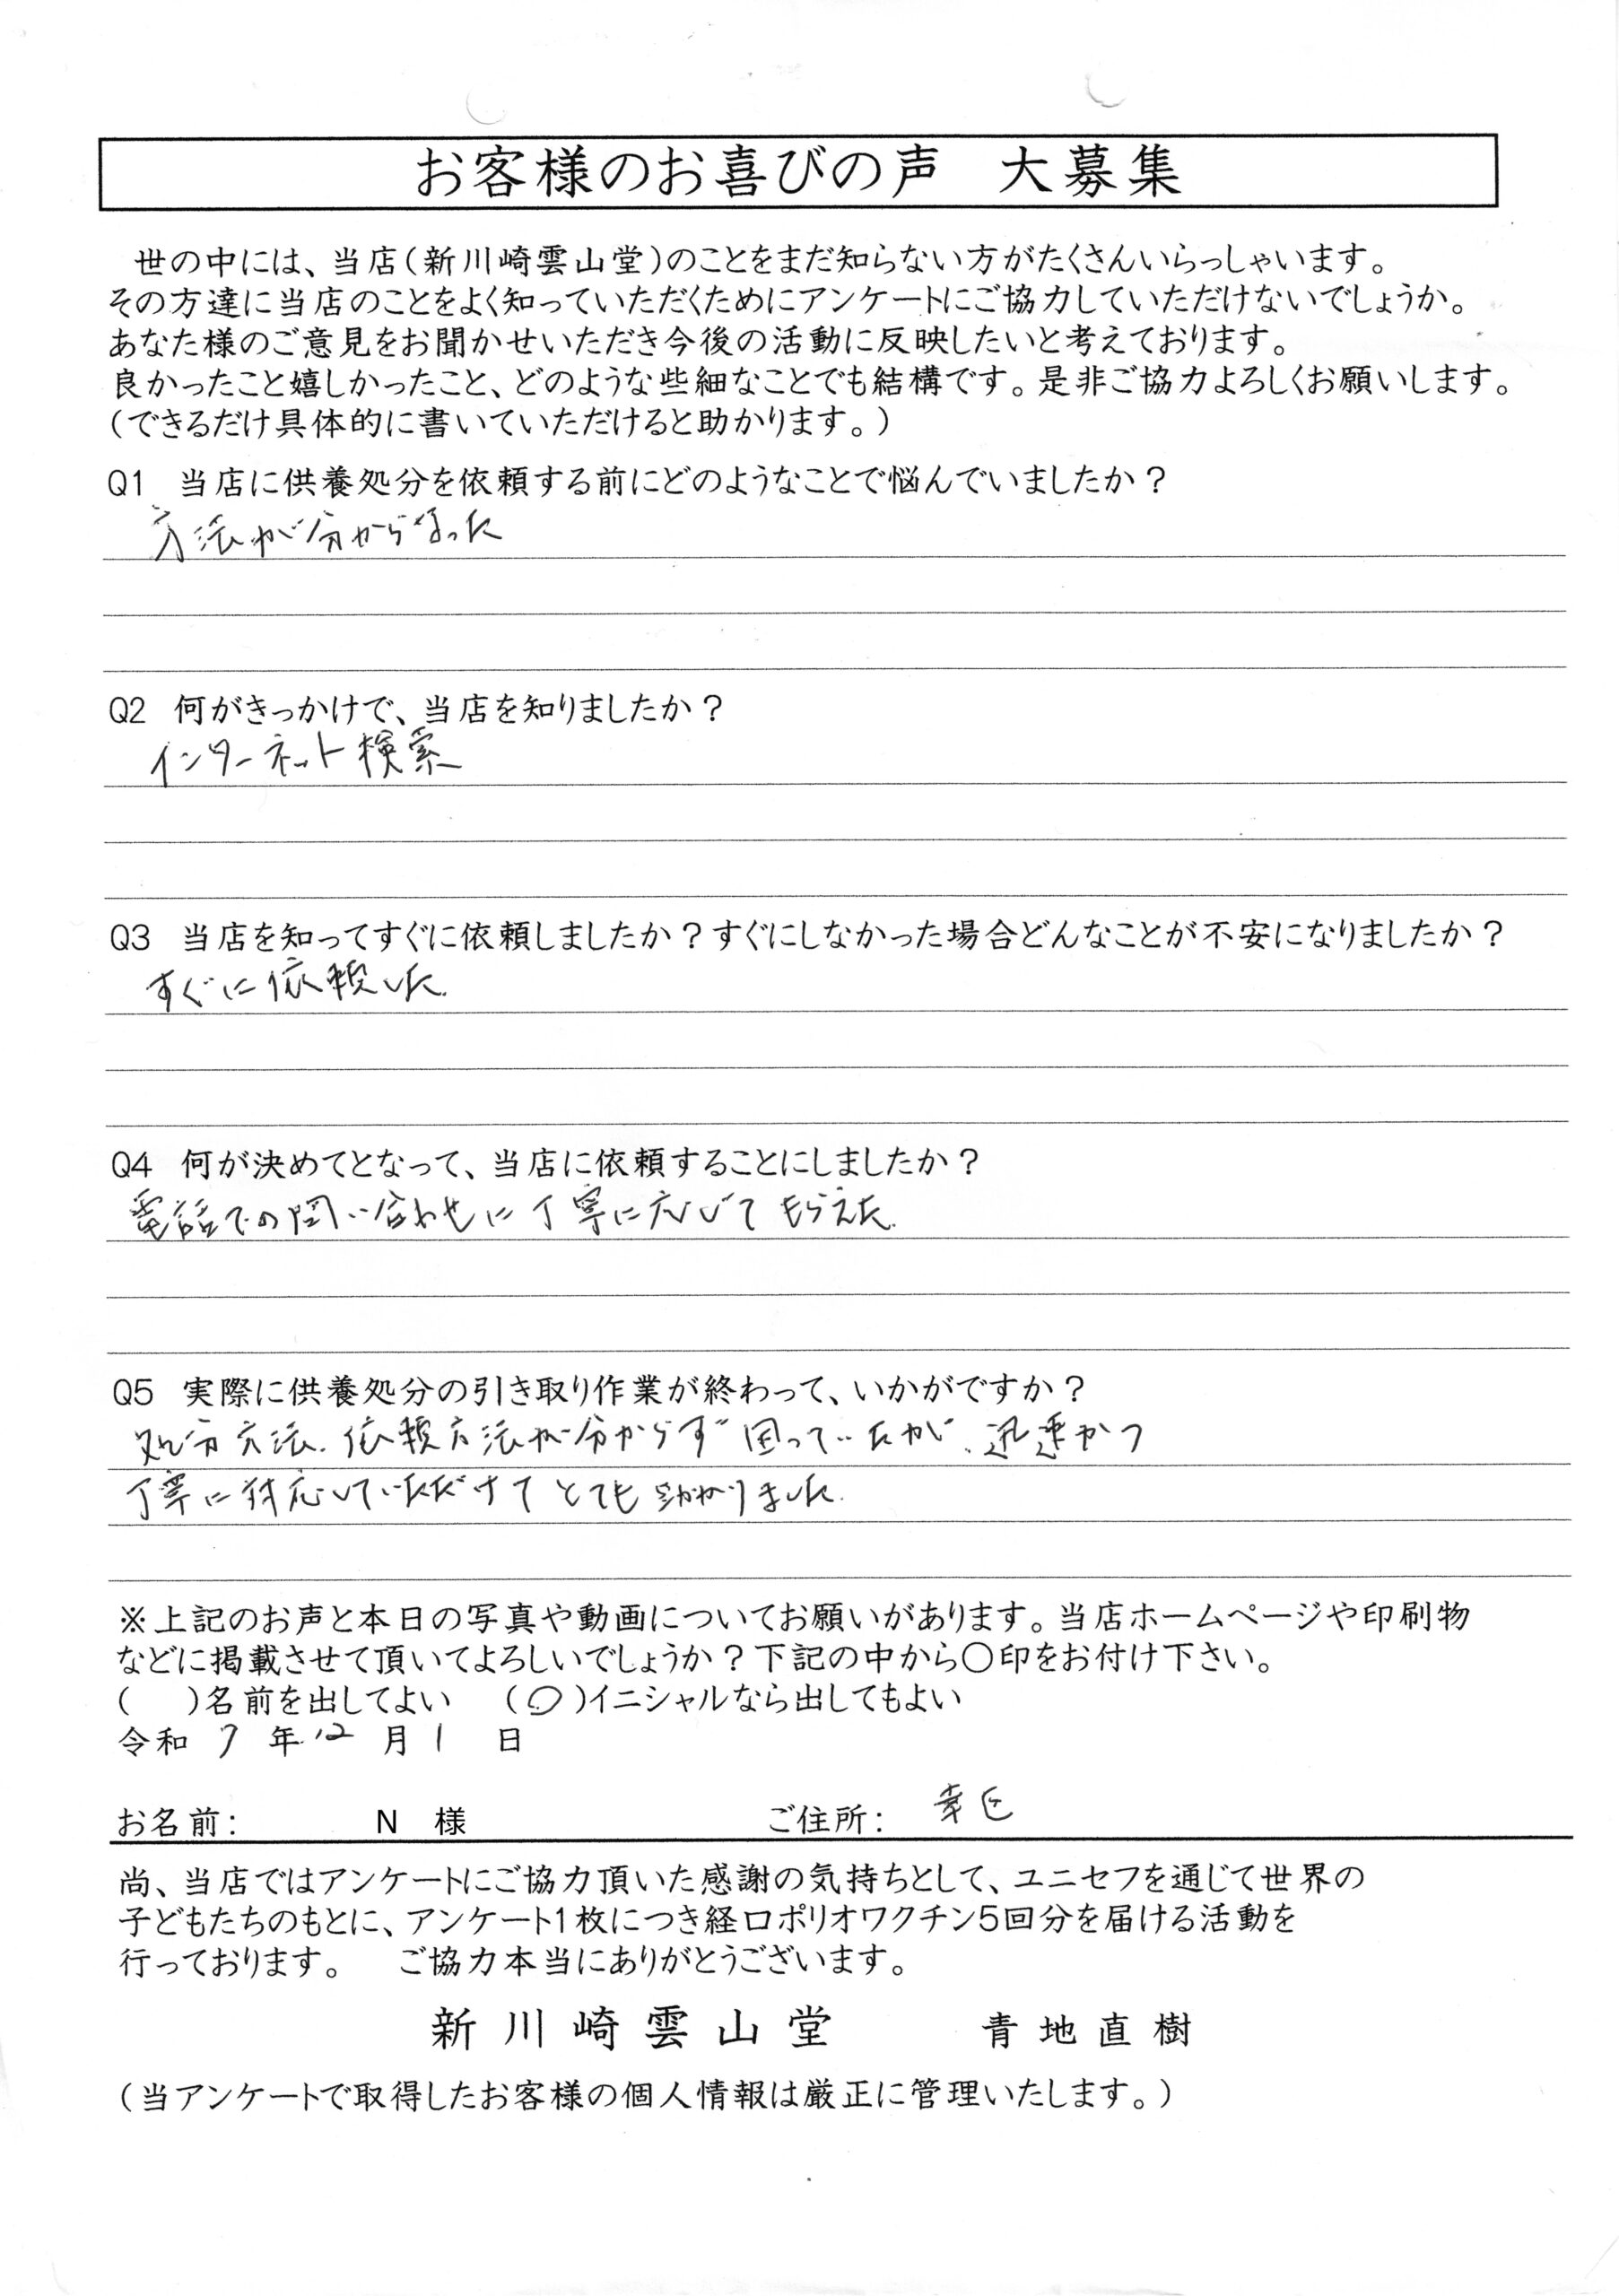 お客様のお喜びの声　大募集
世の中には、当店(新川崎雲山堂)のことをまだ知らない方がたくさんいらっしゃいます。
その方達に当店のことをよく知っていただくためにアンケートにご協力していただけないでしょうか。
あなた様のご意見をお聞かせいただき今後の活動に反映したいと考えております。
良かったこと嬉しかったこと、どのような些細なことでも結構です。是非ご協力よろしくお願いします。
(できるだけ具体的に書いていただけると助かります。)
Q1　当店に供養処分を依頼する前にどのようなことで悩んでいましたか？
方法が分からなった
Q2　何がきっかけで、当店を知りましたか？
インターネット検索
Q3　当店を知ってすぐに依頼しましたか？すぐにしなかった場合どんなことが不安になりましたか？
すぐに依頼した.
Q4　何が決めてとなって、当店に依頼することにしましたか？
電話での問い合わせに丁寧に応じてもらえた.
Q5　実際に供養処分の引き取り作業が終わって、いかがですか？
処分方法、依頼方法が分からず困っていたが、迅速かつ
丁寧に対応していただけてとても助かりました.
※上記のお声と本日の写真や動画についてお願いがあります。当店ホームページや印刷物
などに掲載させて頂いてよろしいでしょうか？下記の中から〇印をお付け下さい。
(　　)名前を出してよい　　(〇)イニシャルなら出してもよい
令和　7　年 12　月 1　日
お名前:　　N　様　　ご住所:　幸区
尚、当店ではアンケートにご協力頂いた感謝の気持ちとして、ユニセフを通じて世界の
子どもたちのもとに、アンケート1枚につき経口ポリオワクチン5回分を届ける活動を
行っております。　ご協力本当にありがとうございます。
新川崎雲山堂　　青地直樹
(当アンケートで取得したお客様の個人情報は厳正に管理いたします。)